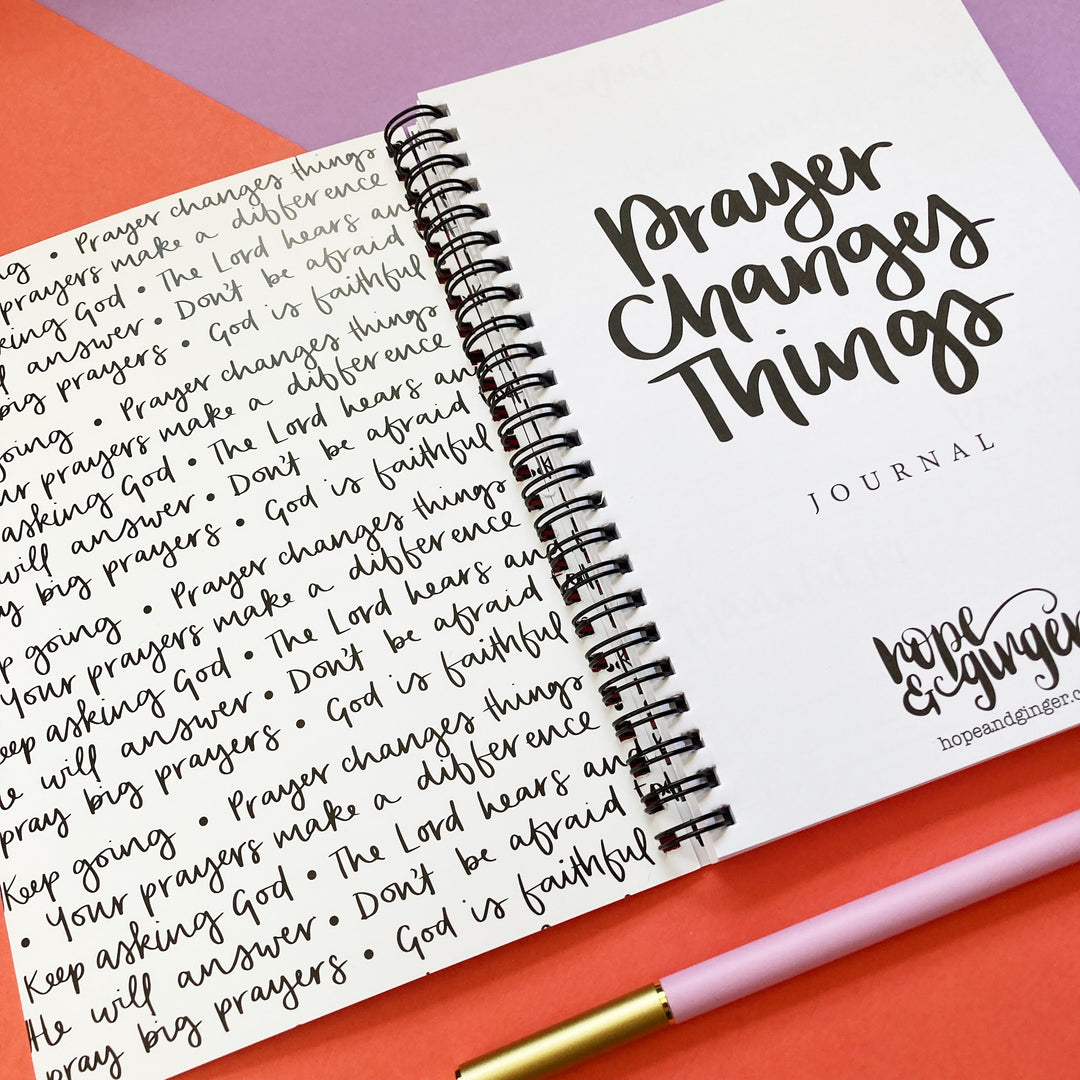 ng • Prayer changes things
prayers make a difference
king God • The Lord hears an
answer • Don't be afraid
big prayers • God is faithful
going • Prayer changes things
ur prayers make a difference
asking God • The Lord hears an
will answer • Don't be afraid
y big prayers • God is faithful
p going • Prayer changes things
Your prayers make a difference
eep asking God • The Lord hears and
He will answer • Don't be afraid
pray big prayers • God is faithful
Keep going • Prayer changes things
• Your prayers make a difference
Keep asking God • The Lord hears and
He will answer • Don't be afraid to
pray big prayers • God is faithful
Prayer
Changes
Things
JOURNAL
hope
& ginger
hopeandginger.c